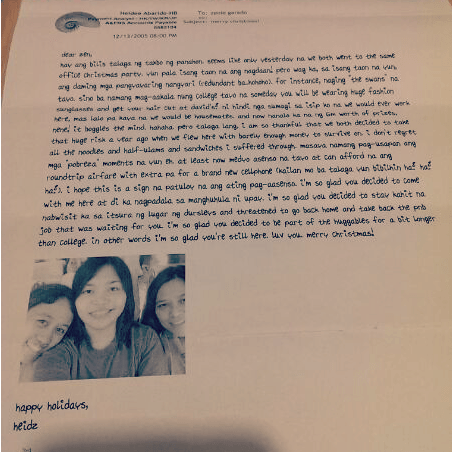 Heidee Abarido-HB
Payment Analyst
Accounts Payable
To:
Subject: merry christmas!
12/13/2005 08:00 PM
dear zen,
hay ang bilis talaga ng takbo ng panahon. seems like only yesterday na we both went to the same
office christmas party. yun pala isang taon na ang nagdaan! pero wag ka, sa isang taon na yun,
ang daming mga pangyayaring nangyari (redundant ba,hohoho). for instance, naging 'the swans' na
tayo. sino ba namang mag-aakala nung college tayo na someday you will be wearing huge fashion
sunglasses and get your hair cut at david's! ni hindi nga sumagi sa isip ko na we would ever work
here, mas lalo pa kaya na we would be housemates. and now nanalo ka na ng 6m worth of prizes,
hehe! it boggles the mind. hahaha. pero talaga lang, i am so thankful that we both decided to take
that huge risk a year ago when we flew here with barely enough money to survive on. i don't regret
all the noodles and half-ulams and sandwiches i suffered through. masaya namang pag-usapan ang
mga "pobreza" moments na yun eh. at least now medyo asenso na tayo at can afford na ang
roundtrip airfare with extra pa for a brand new cellphone (kailan mo ba talaga yun bibilhin ha? ha?
ha?). i hope this is a sign na patuloy na ang ating pag-aasenso. i'm so glad you decided to come
with me here at di ka nagpadala sa manghuhula ni upay. i'm so glad you decided to stay kahit na
nabwisit ka sa itsura ng lugar ng dursleys and threatened to go back home and take back the pnb
job that was waiting for you. i'm so glad you decided to be part of the huggables for a bit longer
than college. in other words i'm so glad you're still here. luv you. merry christmas!
happy holidays,
heidz